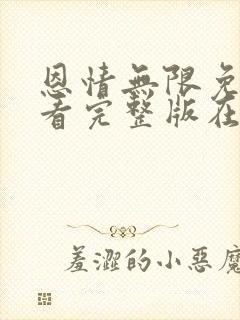 恩情無限免
看完整版在
羞澀的小惡魔